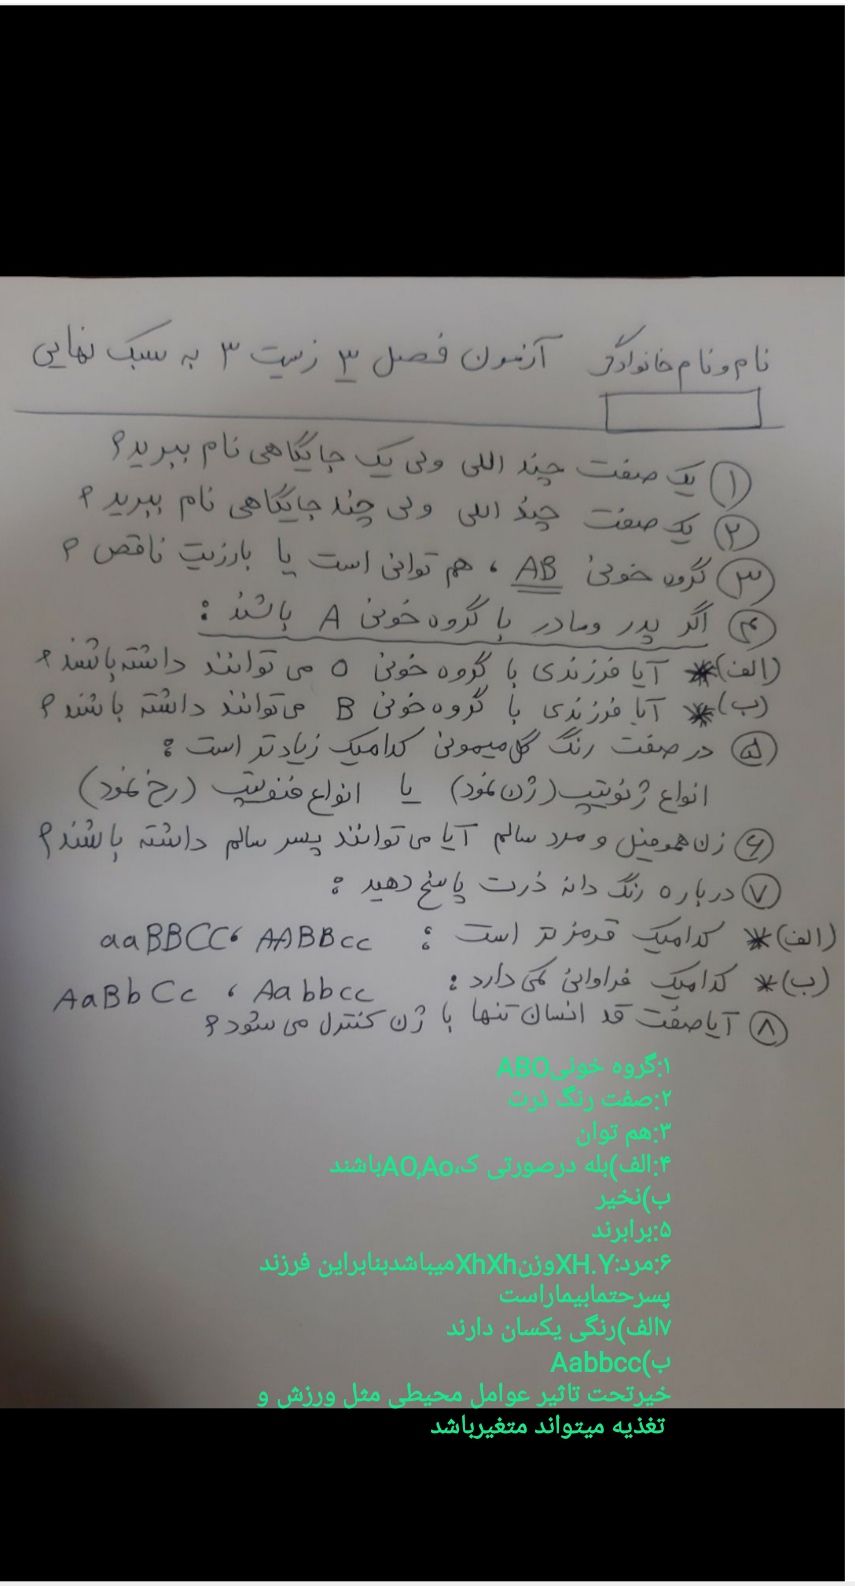 نام و نام خانوادگی آزمون فصل ۳ زیست ۳ به سبک نهایی
۱ یک صفت چند اللی ولی یک جایگاهی نام ببرید؟
۲ یک صفت چند اللی ولی چند جایگاهی نام ببرید؟
۳ گروه خونی AB، هم توانی است یا بارزیت ناقص؟
۴ اگر پدر و مادر با گروه خونی A باشند:
الف) * آیا فرزندی با گروه خونی O می توانند داشته باشند؟
ب) * آیا فرزندی با گروه خونی B می توانند داشته باشند؟
۵ در صفت رنگ گل میمونی کدامیک زیادتر است:
انواع ژنوتیپ (ژن نمود) یا انواع فنوتیپ (رخ نمود)
۶ زن هموفیل و مرد سالم آیا می توانند پسر سالم داشته باشند؟
۷ درباره رنگ دانه ذرت پاسخ دهید:
الف) * کدامیک قرمز تر است: AABBcc ، aaBBCC
ب) * کدامیک فراوانی کمی دارد: Aabbcc ، AaBbCc
۸ آیا صفت قد انسان تنها با ژن کنترل می شود؟
۱:گروه خونیABO
۲:صفت رنگ ذرت
۳:هم توان
۴:الف)بله درصورتی ک،AO,Aoباشند
ب)نخیر
۵:برابرند
۶:مرد:XH.YوزنXhXhمیباشدبنابراین فرزند
پسرحتمابیماراست
۷الف)رنگی یکسان دارند
ب)Aabbcc
خیرتحت تاثیر عوامل محیطی مثل ورزش و
تغذیه میتواند متغیرباشد